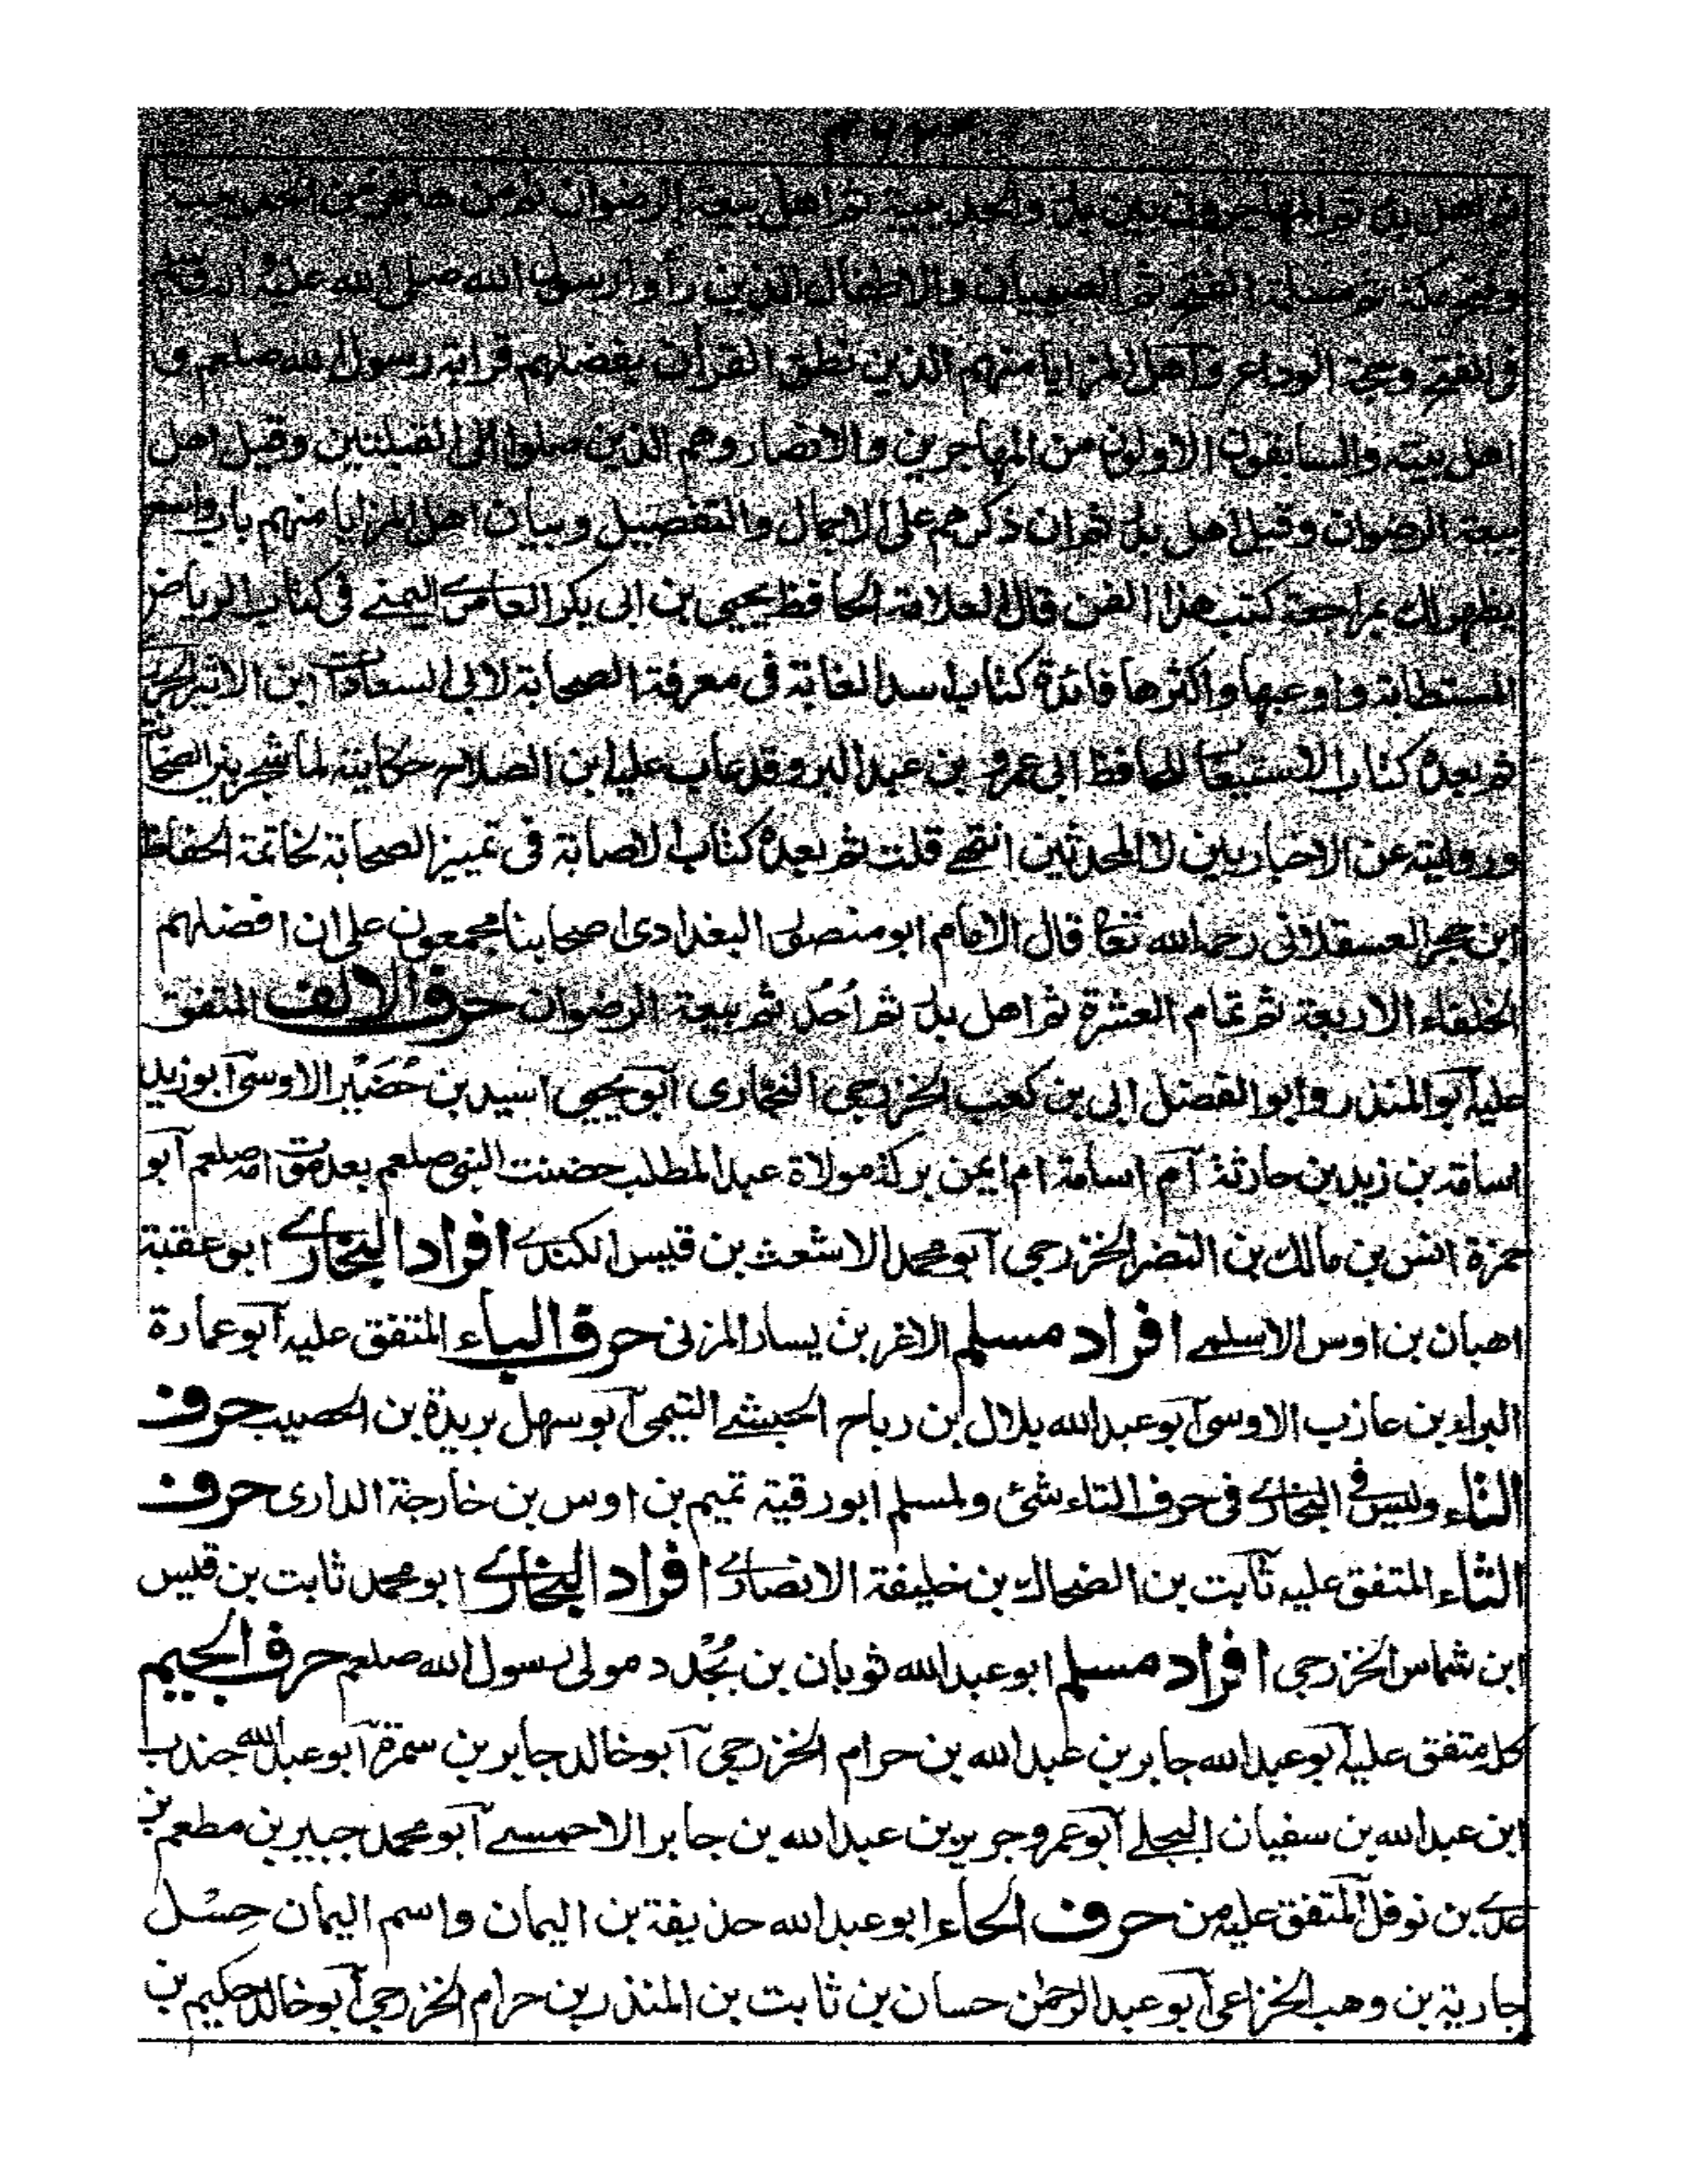 ثم اهل بدر ثم المهاجرون بين بدر والحديبية ثم اهل بيعة الرضوان ثم من هاجر بين الحديبية
وفتح مكة ثم مسلمة الفتح ثم الصبيان والاطفال الذين رأوا رسول الله صلى الله عليه
فى الفتح وحجة الوداع واهل المزايا منهم الذين نطق القرآن بفضلهم قرابة رسول الله صلعم و
اهل بيته والسابقون الاولون من المهاجرين والانصار وهم الذين صلوا الى القبلتين وقيل اهل
بيعة الرضوان وقيل اهل بدر ثم ان ذكرهم على الاجمال والتفصيل وبيان اهل المزايا منهم باب واسع
يظهر لك بمراجعة كتب هذا الفن قال العلامة الحافظ يحيى بن ابى بكر العامرى اليمنى فى كتاب الرياض
المستطابة واوعبها واكثرها فائدة كتاب اسد الغابة فى معرفة الصحابة لابى السعادات ابن الاثير الجزرى
ثم بعده كتاب الاستيعاب للحافظ ابى عمرو بن عبد البر وقد عاب عليه ابن الصلاح حكايته لما شجر بين الصحابة
وروايته عن الاخباريين لا المحدثين انتهى قلت ثم بعده كتاب الاصابة فى تمييز الصحابة لخاتمة الحفاظ
ابن حجر العسقلانى رحمه الله تعا قال الامام ابو منصور البغدادى اصحابنا مجمعون على ان افضلهم
الخلفاء الاربعة ثم تمام العشرة ثم اهل بدر ثم اُحُد ثم بيعة الرضوان حرف الالف المتفق
عليه ابو المنذر وابو الفضل ابى بن كعب الخزرجى النجارى ابو يحيى اسيد بن حُضَيْر الاوسى ابو زيد
اسامة بن زيد بن حارثة ام اسامة ام ايمن بركة مولاة عبد المطلب حضنت النبى صلعم بعد موت امه صلعم ابو
حمزة انس بن مالك بن النضر الخزرجى ابو محمد الاشعث بن قيس الكندى افراد البخارى ابو عقبة
اهبان بن اوس الاسلمى افراد مسلم الاغر بن يسار المزنى حرف الباء المتفق عليه ابو عمارة
البراء بن عازب الاوسى ابو عبد الله بلال بن رباح الحبشى التيمى ابو سهل بريدة بن الحصيب حرف
التاء وليس فى البخارى فى حرف التاء شئ ولمسلم ابو رقية تميم بن اوس بن خارجة الدارى حرف
الثاء المتفق عليه ثابت بن الضحاك بن خليفة الانصارى افراد البخارى ابو محمد ثابت بن قيس
ابن شماس الخزرجى افراد مسلم ابو عبد الله ثوبان بن بُجْدد مولى رسول الله صلعم حرف الجيم
كل متفق عليه ابو عبد الله جابر بن عبد الله بن حرام الخزرجى ابو خالد جابر بن سمرة ابو عبد الله جندب
ابن عبد الله بن سفيان البجلى ابو عمرو جرير بن عبد الله بن جابر الاحمسى ابو محمد جبير بن مطعم بن
عدى بن نوفل المتفق عليه من حرف الحاء ابو عبد الله حذيفة بن اليمان واسم اليمان حِسْل
جارية بن وهب الخزاعى ابو عبد الرحمن حسان بن ثابت بن المنذر بن حرام الخزرجى ابو خالد حكيم بن